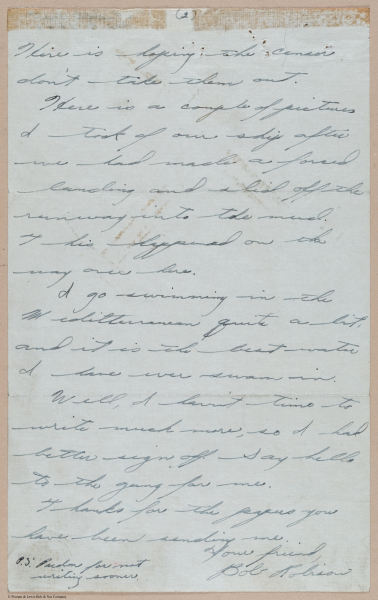 (2)
Here is hoping the censor
don't take them out.
Here is a couple of pictures
I took of our ship after
we had made a forced
landing and slid off the
runway into the mud.
This happened on the
way over here.
I go swimming in the
Mediditterranean quite a bit,
and it is the best water
I have ever swam in.
Well, I haven't time to
write much more, so I had
better sign off. Say hello
to the gang for me.
Thanks for the papers you
have been sending me.
Your friend,
Bob Robison
P.S. Pardon for not
writing sooner.